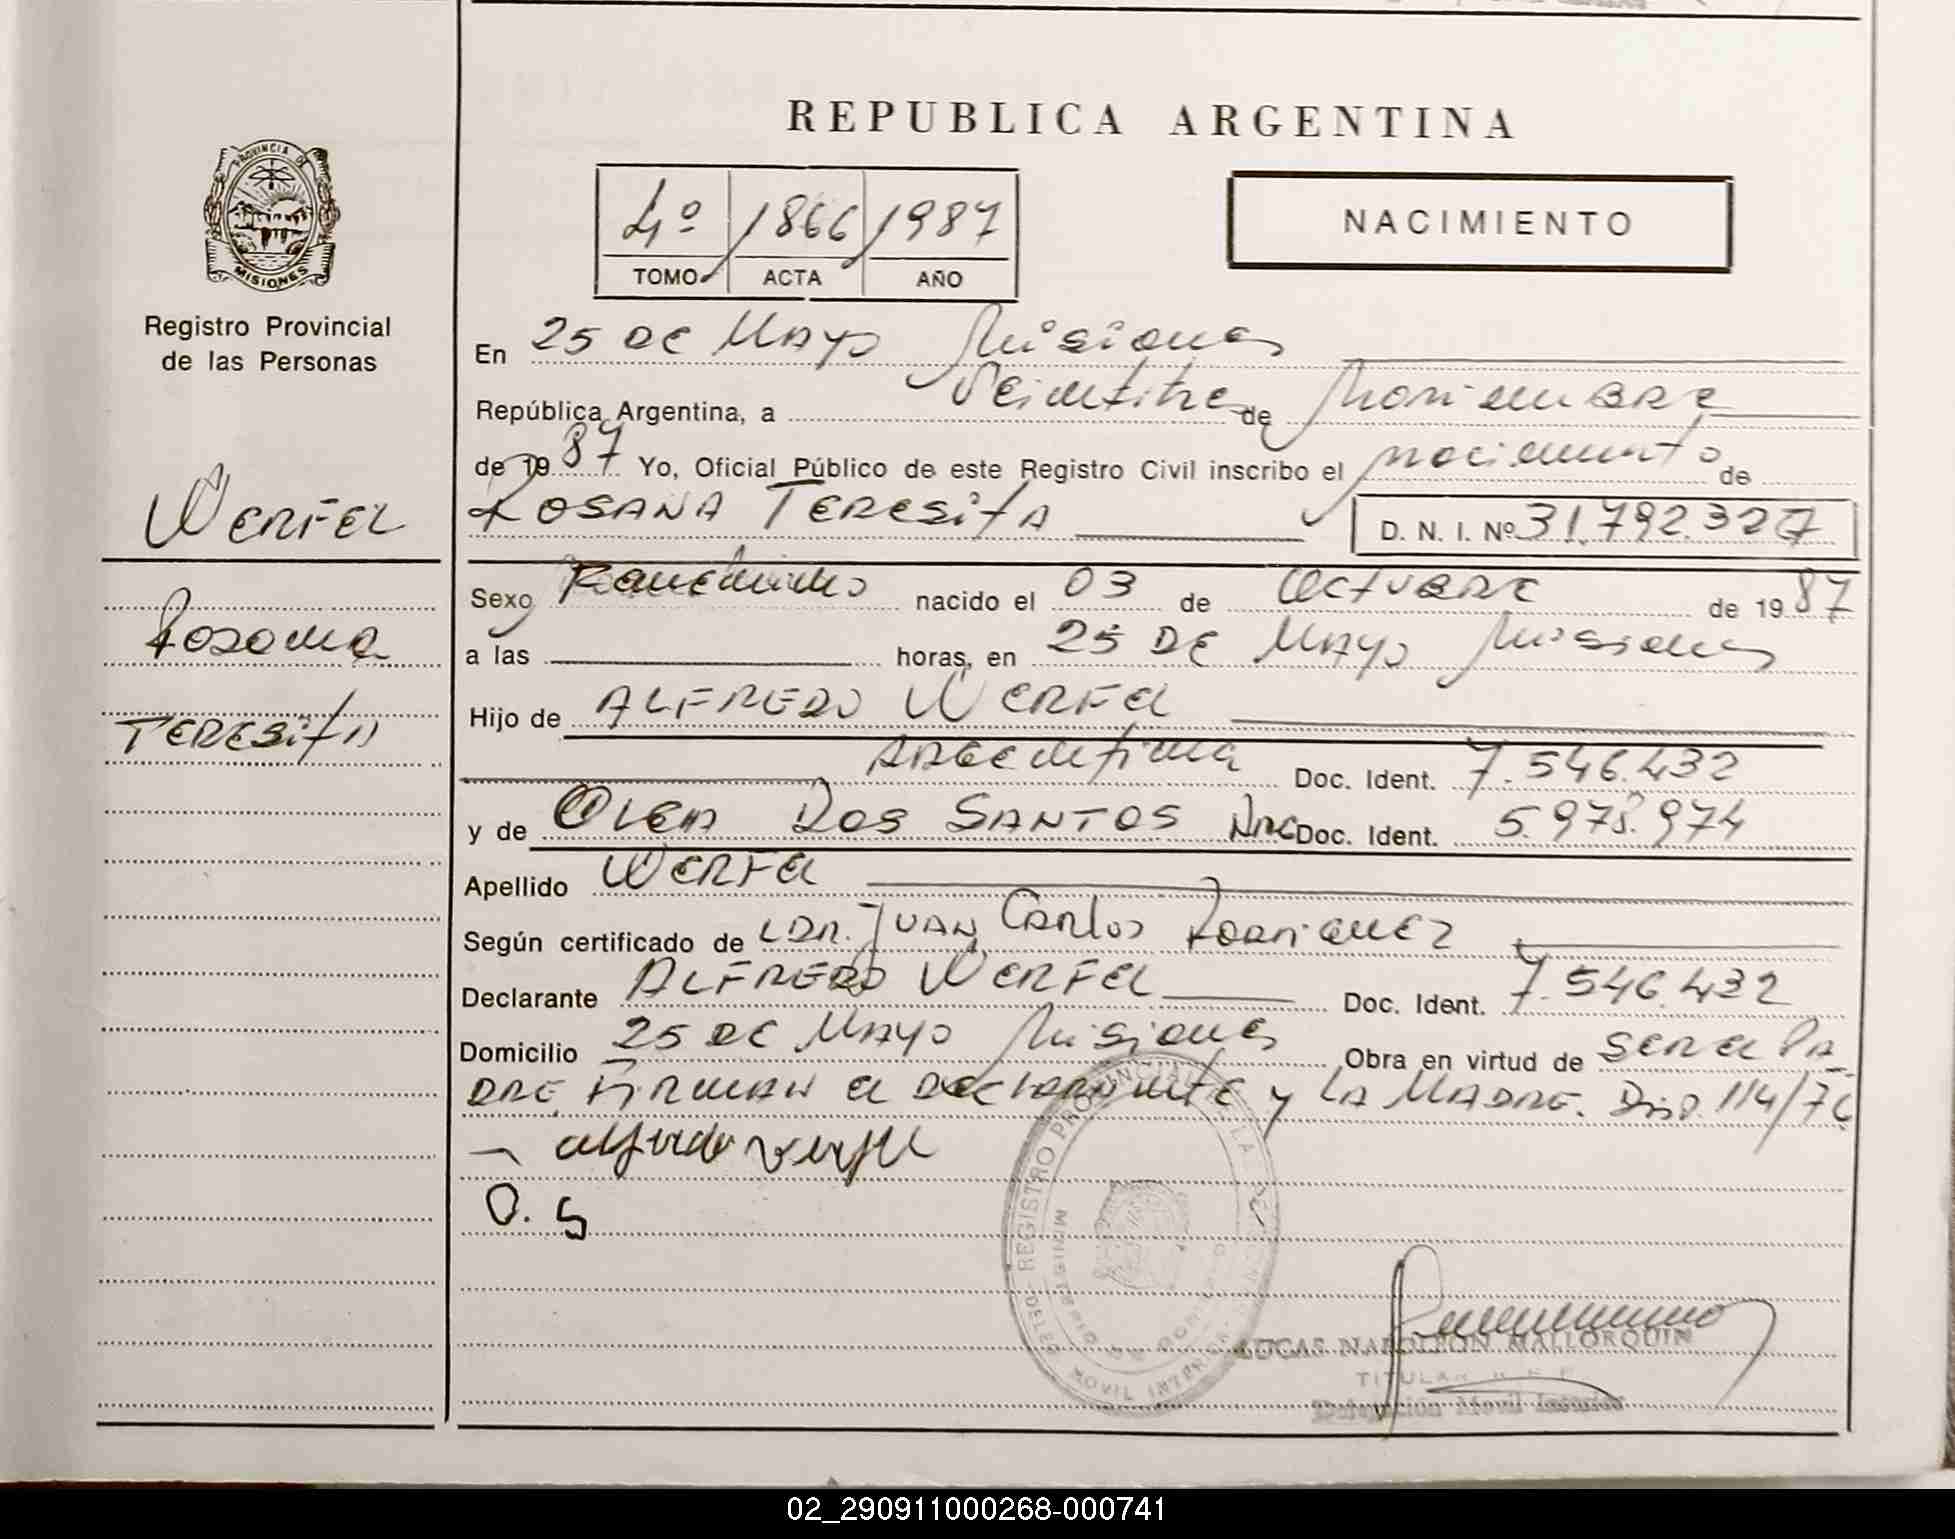 REPUBLICA ARGENTINA
PROVINCIA DE
MISIONES
Registro Provincial
de las Personas
4º 1866 1987
TOMO ACTA AÑO
NACIMIENTO
WERFEL
Rosana
TERESITA
En 25 DE MAYO Misiones
República Argentina, a Veintitres de Noviembre
de 1987 Yo, Oficial Público de este Registro Civil inscribo el nacimiento de
ROSANA TERESITA D. N. I. Nº 31.792.327
Sexo nacido el 03 de OCTUBRE de 1987
a las horas, en 25 DE MAYO Misiones
Hijo de ALFREDO WERFEL
ARGENTINA Doc. Ident. 7.546.432
y de OLGA DOS SANTOS Doc. Ident. 5.978.974
Apellido WERFEL
Según certificado de JUAN Carlos RODRIGUEZ
Declarante ALFREDO WERFEL Doc. Ident. 7.546.432
Domicilio 25 DE MAYO Misiones Obra en virtud de SER el PA
DRE, FIRMAN el DECLARANTE y LA MADRE. Disp. 114/76
alfredo werfel
O. S
REGISTRO PROVINCIAL DE LA
LUCAS NAPOLEON MALLORQUIN
TITULAR
Delegación Movil Interior
02_290911000268-000741